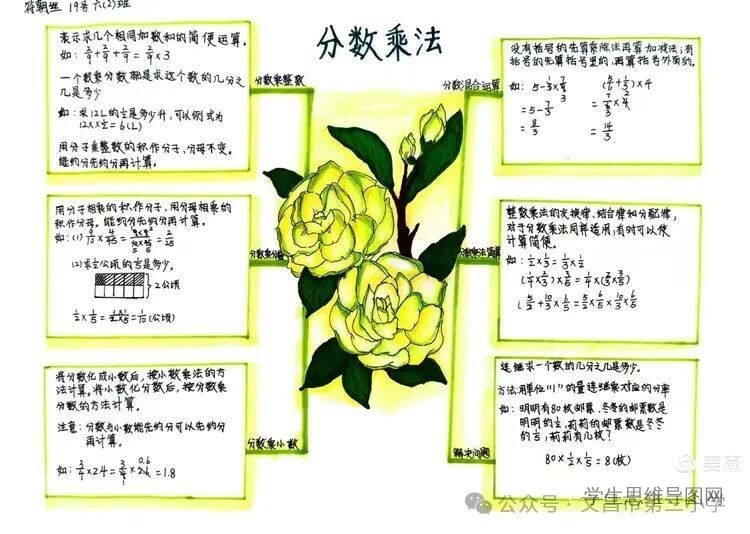 符朝煋 19号 六(2)班
分数乘法
表示求几个相同加数和的简便运算。
如: 2/9+2/9+2/9=2/9×3
一个数乘分数就是求这个数的几分之
几是多少
如:求12L的1/2是多少升,可以列式为
12××1/2=6(L)
用分子乘整数的积作分子,分母不变。
能约分先约分再计算。
分数乘整数
用分子相乘的积作分子,用分母相乘的
积作分母。能约分先约分再计算。
(2)求1/2公顷的1/5是多少。
2公顷
1/2×1/5=1×1/2×5=1/10(公顷)
分数乘分数
将分数化成小数后,按小数乘法的方
法计算。将小数化分数后,按分数乘
分数的方法计算。
注意:分数与小数能先约分可以先约分
再计算。
如: 3/4×2.4=3/4×2.4=1.8
0.6
1
分数乘小数
没有括号的先算乘除法再算加减法;有
括号的先算括号里的,再算括号外面的。
(5/6+1/3)×4
=5-7/3
=8/3
=14/3
分数混合运算
整数乘法的交换律、结合律和分配律,
对于分数乘法同样适用,有时可以使
计算简便。
如: 1/2×1/3=1/3×1/2
(1/4×2/3)×3/5=1/4×(2/3×3/5)
(5/2+10/3)×6/5=5/2×6/5×10/3×6/5
分数乘法简算
连继求一个数的几分之几是多少。
方法:用单位“1”的量连继乘对应的分率
如:明明有80枚邮票,冬冬的邮票数是
明明的1/2,莉莉的邮票数是冬冬
的1/5,莉莉有几枚?
80×1/2×1/5=8(枚)
解决问题
美篇
学生思维导图网
公众号·文昌市第三小学